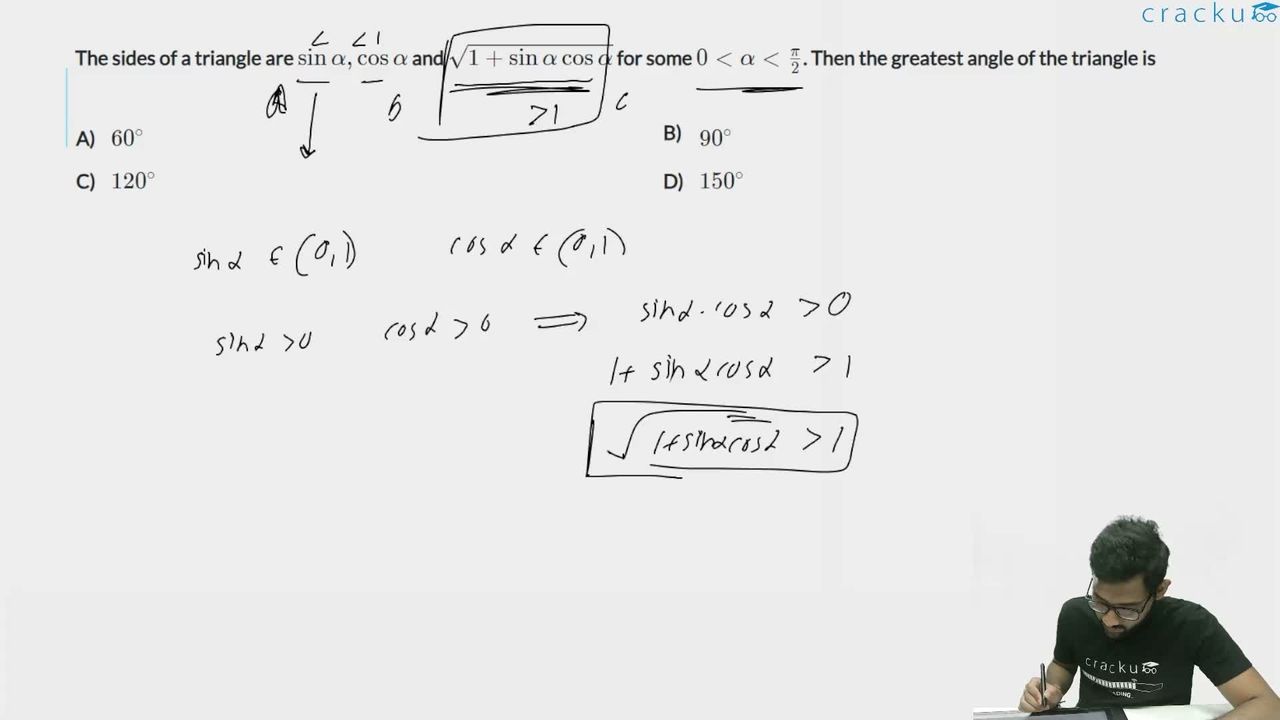 cracku
< < 1
The sides of a triangle are sin α, cos α and √1 + sin α cos α for some 0 < α < π/2. Then the greatest angle of the triangle is
b > 1 c
A) 60° B) 90°
C) 120° D) 150°
sin α ∈ (0,1) cos α ∈ (0,1)
sin α > 0 cos α > 0 ⟹ sin α · cos α > 0
1 + sin α cos α > 1
√1+sin α cos α > 1
cracku